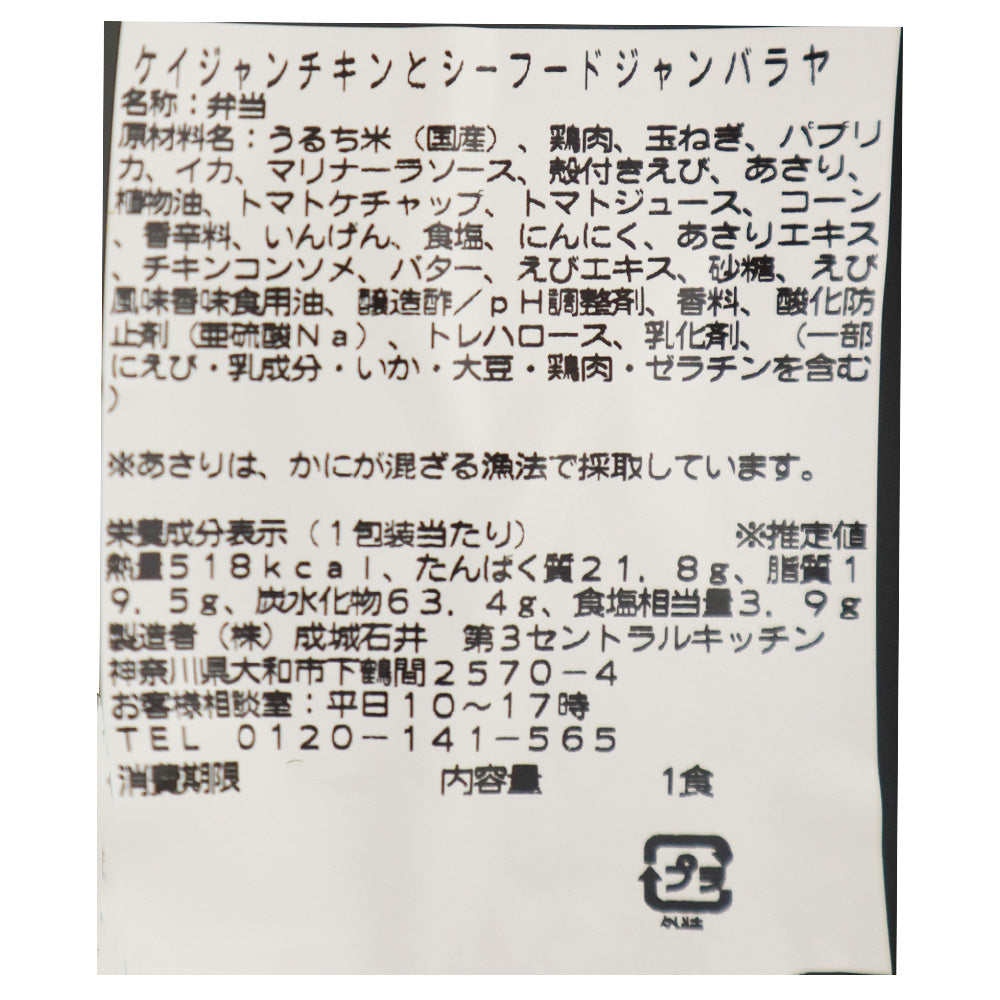 ケイジャンチキンとシーフードジャンバラヤ
名称：弁当
原材料名：うるち米（国産）、鶏肉、玉ねぎ、パプリ
カ、イカ、マリナーラソース、殻付きえび、あさり、
植物油、トマトケチャップ、トマトジュース、コーン
、香辛料、いんげん、食塩、にんにく、あさりエキス
、チキンコンソメ、バター、えびエキス、砂糖、えび
風味香味食用油、醸造酢／ｐＨ調整剤、香料、酸化防
止剤（亜硫酸Ｎａ）、トレハロース、乳化剤、（一部
にえび・乳成分・いか・大豆・鶏肉・ゼラチンを含む
）
※あさりは、かにが混ざる漁法で採取しています。
栄養成分表示（１包装当たり）　※推定値
熱量５１８ｋｃａｌ、たんぱく質２１．８ｇ、脂質１
９．５ｇ、炭水化物６３．４ｇ、食塩相当量３．９ｇ
製造者（株）成城石井　第３セントラルキッチン
神奈川県大和市下鶴間２５７０－４
お客様相談室：平日１０～１７時
ＴＥＬ　０１２０－１４１－５６５
消費期限　内容量　1食
プラ